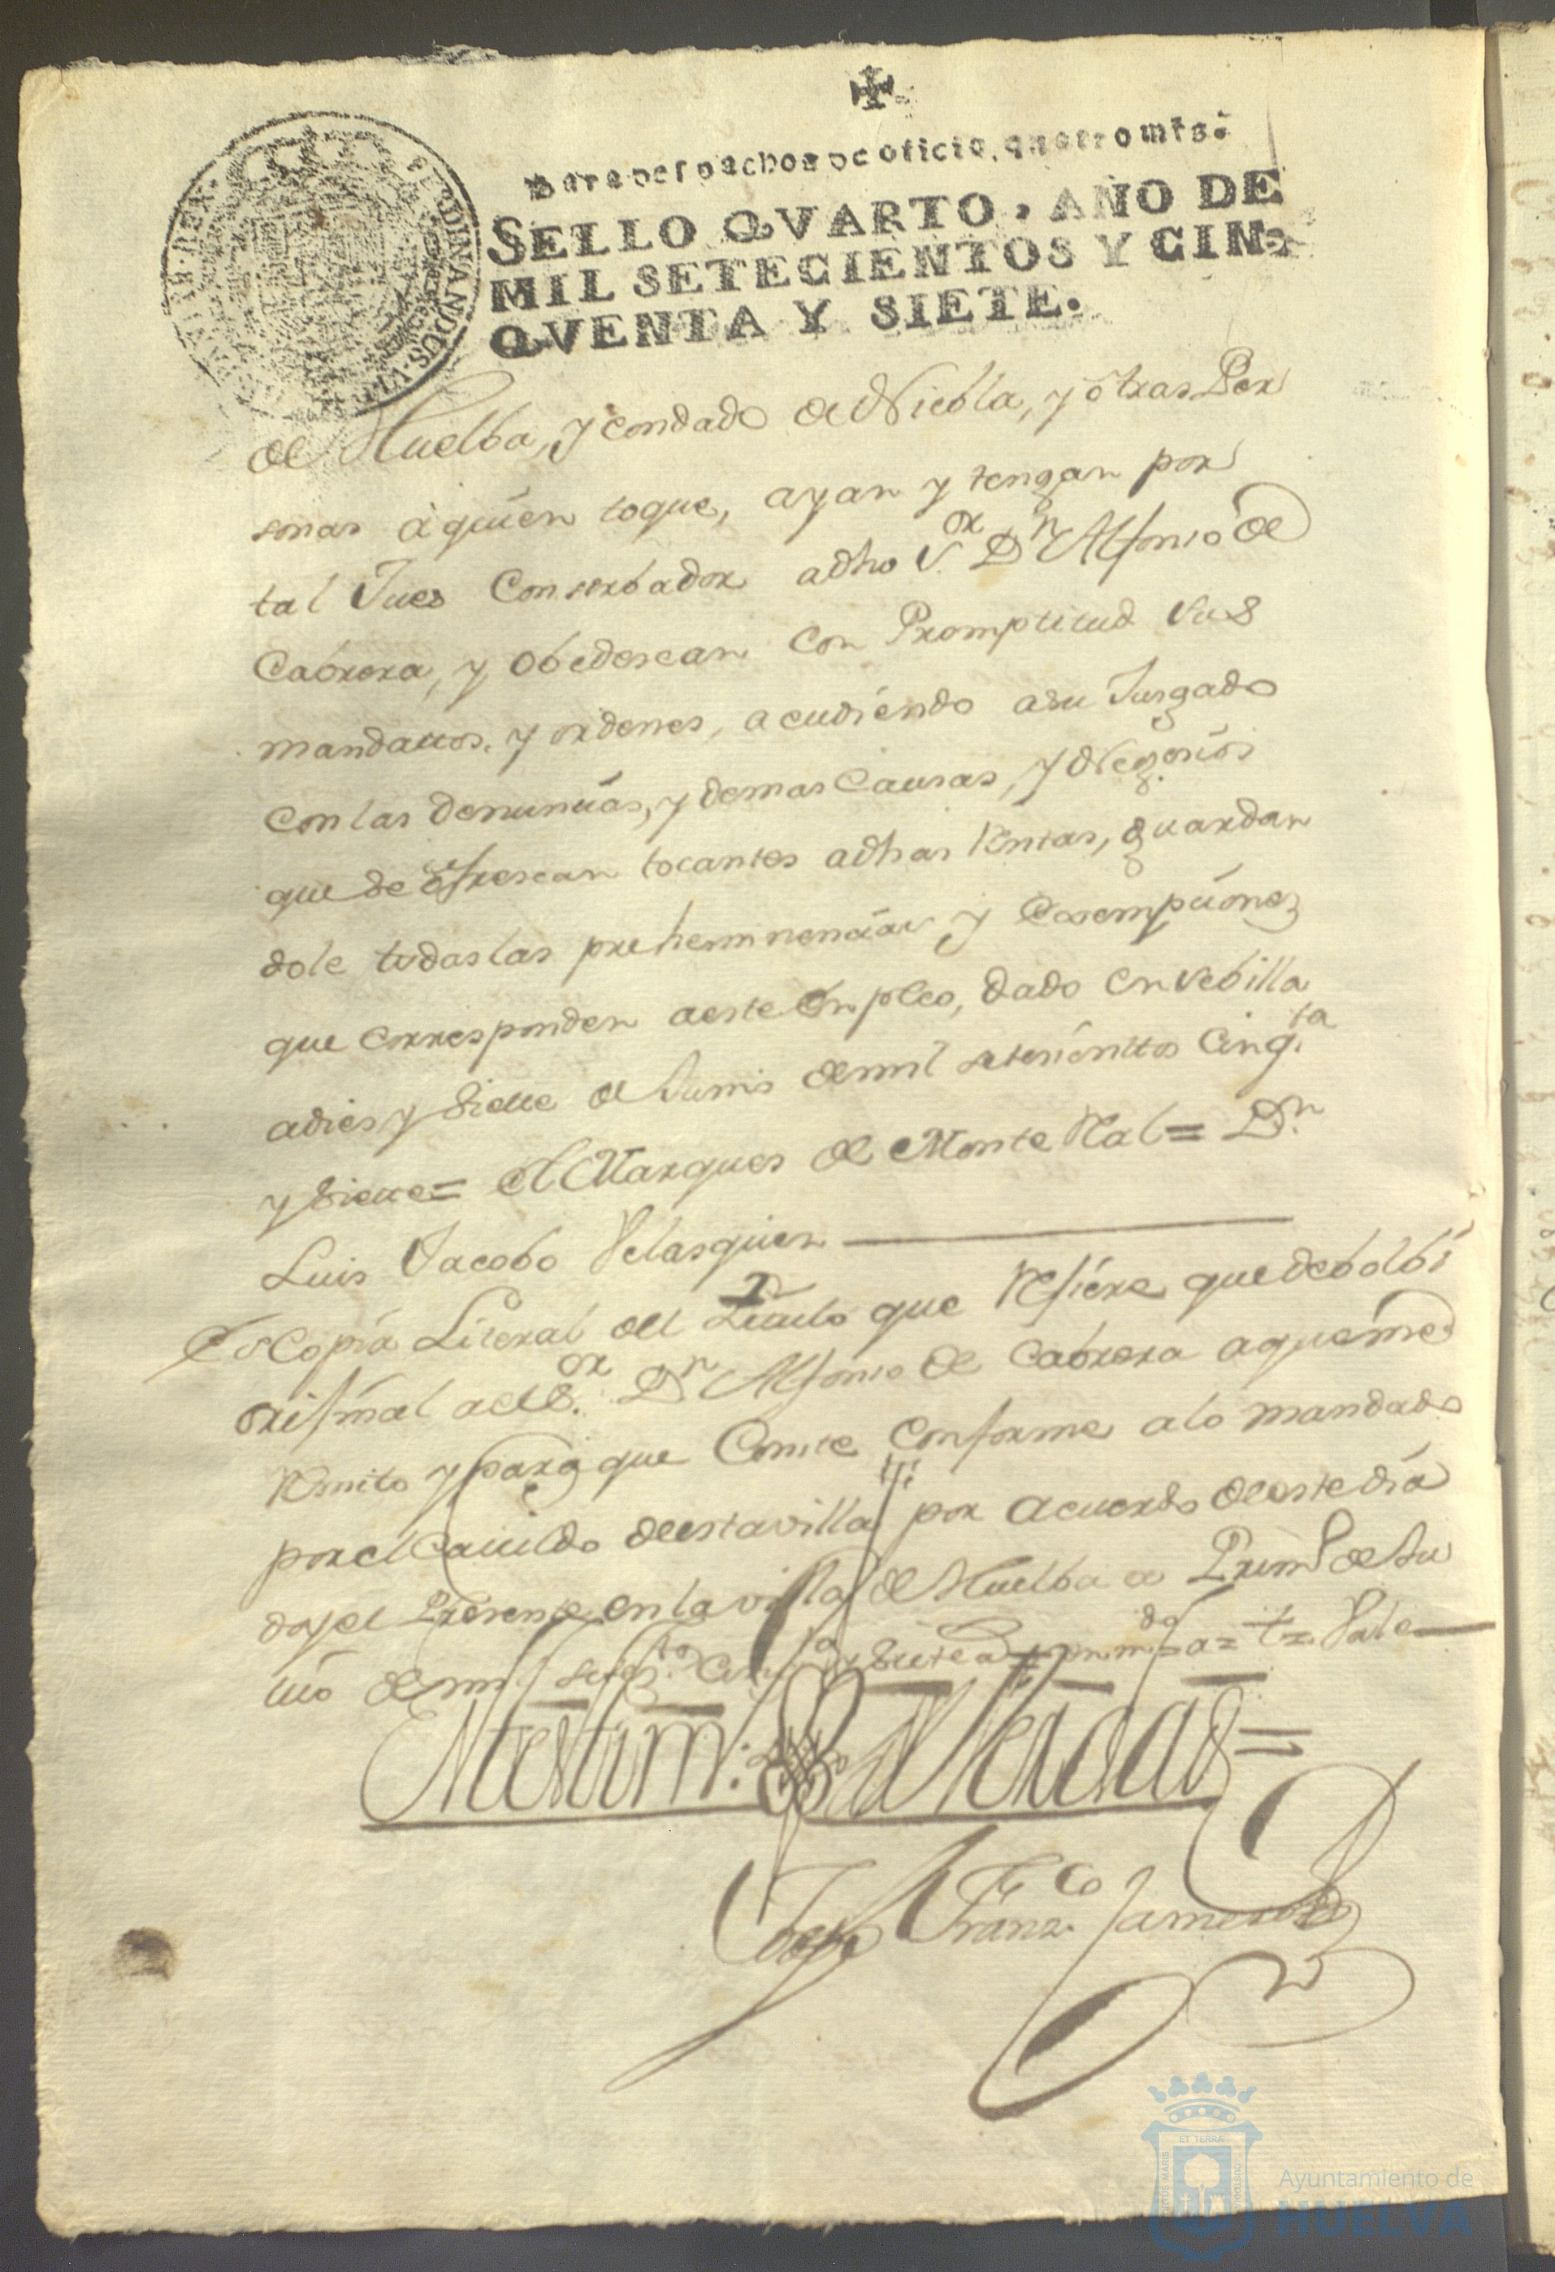 Para despachos de oficio, quatro mrs.
SELLO QVARTO, AÑO DE
MIL SETECIENTOS Y CIN-
QVENTA Y SIETE.
FERDINANDUS VI
HISPANIAR REX
de Huelba, y Condado de Niebla, y otras Per
sonas à quien toque, ayan y tengan por
tal Jues Conserbador adho Sor. Dn. Alfonso de
Cabrera, y obedescan con Promptitud sus
mandattos, y ordenes, acudiendo asu Jusgado
con las denuncias, y demas Causas, y Negocios
que se ofrescan tocantes adhas Rentas, guardan
dole todas las prehemmenciàs y Exsempciones
que corresponden aeste Enpleo, dado en Sebilla
adies y siette de Junio de mil setecienttos cinqta.
y siette = El Marques de Monte Rl al = Dn.
Luis Jacobo Velasques
Es Copia Literal del Titulo que Refiere que debolbi
original aelSor. Dn. Alfonso de Cabrera aqueme
Remito y para que Conste conforme alo mandado
por el Cauildo deesta villa por acuerdo deeste dia
doy el Presente en la villa de Huelba a Primo de Ju
lio de mil setesos. cinqta y siete as = enmdo = a = t = Vale
En testim: de Verdad =
Joseph Franzco.
Ayuntamiento de
HUELVA